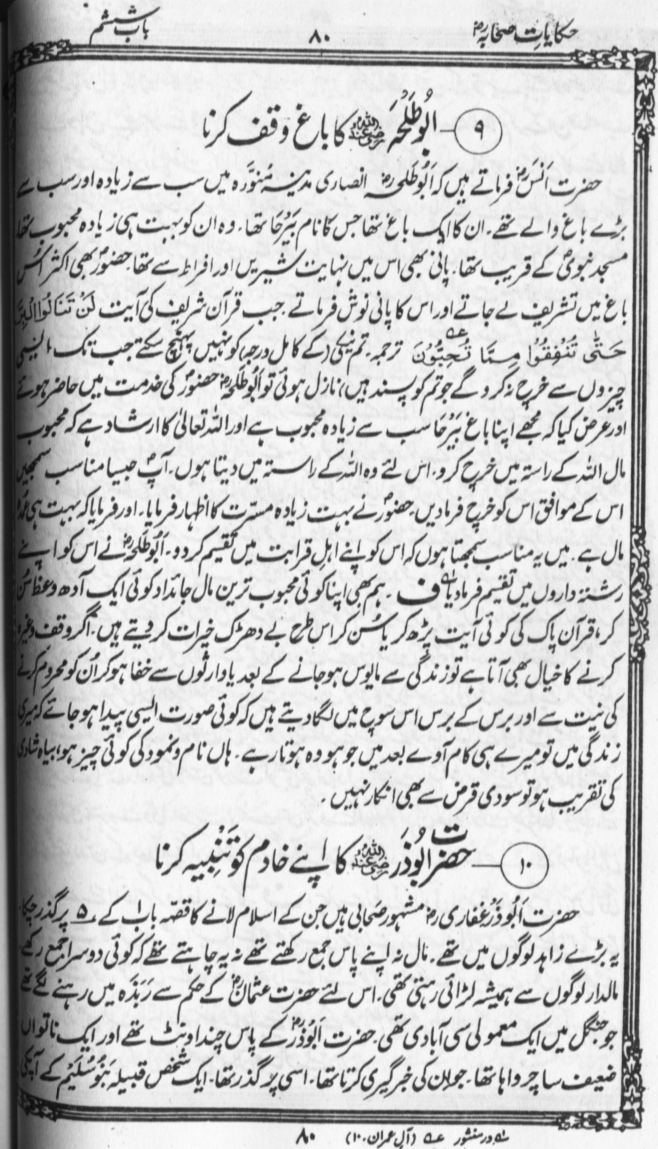 حکایاتِ صحابہؓ ۸۰ باب ششم
۹ ابوطلحہؓ کا باغ وقف کرنا
حضرت انسؓ فرماتے ہیں کہ ابوطلحہؓ انصاری مدینہ منورہ میں سب سے زیادہ اور سب سے
بڑے باغ والے تھے۔ ان کا ایک باغ تھا جس کا نام بَیْرحَا تھا۔ وہ ان کو بہت ہی زیادہ محبوب تھا
مسجد نبویؐ کے قریب تھا۔ پانی بھی اس میں نہایت شیریں اور افراط سے تھا۔ حضورؐ بھی اکثر اُس
باغ میں تشریف لے جاتے اور اس کا پانی نوش فرماتے۔ جب قرآن شریف کی آیت لَنْ تَنَالُوا الْبِرَّ
حَتّٰی تُنْفِقُوْا مِمَّا تُحِبُّوْنَ ترجمہ، تم نیکی (کے کامل درجہ) کو نہیں پہنچ سکتے جب تک ایسی
چیزوں سے خرچ نہ کرو گے جو تم کو پسند ہیں) نازل ہوئی تو ابوطلحہؓ حضورؐ کی خدمت میں حاضر ہوئے
اور عرض کیا کہ مجھے اپنا باغ بَیْرحَا سب سے زیادہ محبوب ہے اور اللہ تعالیٰ کا ارشاد ہے کہ محبوب
مال اللہ کے راستہ میں خرچ کرو۔ اس لئے وہ اللہ کے راستہ میں دیتا ہوں۔ آپؐ جیسا مناسب سمجھیں
اس کے موافق اس کو خرچ فرمادیں۔ حضورؐ نے بہت زیادہ مسرت کا اظہار فرمایا۔ اور فرمایا کہ بہت ہی عمدہ
مال ہے۔ میں یہ مناسب سمجھتا ہوں کہ اس کو اپنے اہلِ قرابت میں تقسیم کردو۔ ابوطلحہؓ نے اس کو اپنے
رشتہ داروں میں تقسیم فرمادیا ف۔ ہم بھی اپنا کوئی محبوب ترین مال جائداد کوئی ایک آدھ وعظ سُن
کر، قرآن پاک کی کوئی آیت پڑھ کر یا سُن کر اس طرح بے دھڑک خیرات کردیتے ہیں۔ اگر وقف وغیرہ
کرنے کا خیال بھی آتا ہے تو زندگی سے مایوس ہوجانے کے بعد یا وارثوں سے خفا ہوکر اُن کو محروم کرنے
کی نیت سے اور برس کے برس اس سوچ میں لگادیتے ہیں کہ کوئی صورت ایسی پیدا ہوجائے کہ میری
زندگی میں تو میرے ہی کام آوے بعد میں جو ہو وہ ہوتا رہے۔ ہاں نام و نمود کی کوئی چیز ہو، بیاہ شادی
کی تقریب ہو تو سودی قرض سے بھی انکار نہیں۔
۱۰ حضرت ابوذرؓ کا اپنے خادم کو تنبیہ کرنا
حضرت ابوذر غفاریؓ مشہور صحابی ہیں جن کے اسلام لانے کا قصّہ باب ۱ کے ۵ پر گذر چکا
یہ بڑے زاہد لوگوں میں تھے۔ مال نہ اپنے پاس جمع رکھتے تھے نہ یہ چاہتے تھے کہ کوئی دوسرا جمع رکھے
مالدار لوگوں سے ہمیشہ لڑائی رہتی تھی۔ اس لئے حضرت عثمانؓ کے حکم سے رَبَذَہ میں رہنے لگے تھے
جو جنگل میں ایک معمولی سی آبادی تھی۔ حضرت ابوذرؓ کے پاس چند اونٹ تھے اور ایک ناتواں
ضعیف سا چرواہا تھا۔ جو ان کی خبر گیری کرتا تھا۔ اسی پر گذر تھا۔ ایک شخص قبیلہ بَنُو سُلَیْم کے آپ کی
۸۰ درمنثور (آل عمران، ۱۰)